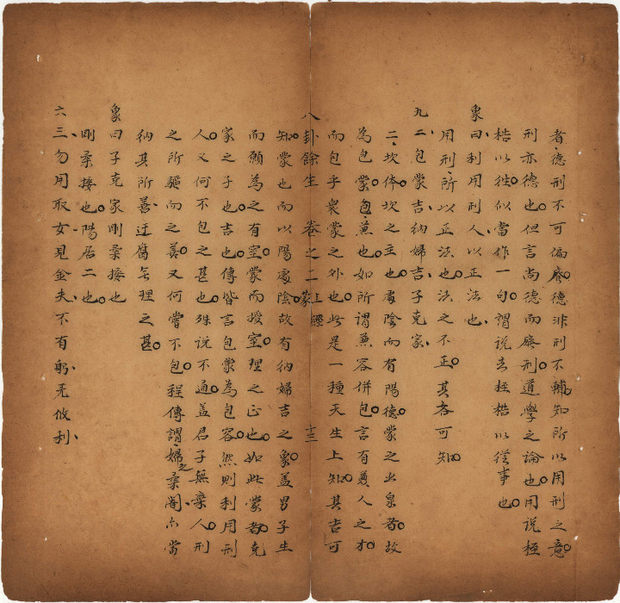 者德刑不可偏廢德非刑不輔知所以用刑之意
刑亦德也但言尚德而廢刑道學之論也用說桎
梏以往似當作一句謂說去桎梏以從事也
象曰利用刑人以正法也
用刑所以正法也法之不正其吝可知
九二包蒙吉納婦吉子克家
二坎体坎之主也處陰而有陽德蒙之出泉者故
為包蒙包意也如所謂兼容併包言有養人之才
而包乎衆蒙之外也此是一種天生上知其吉可
八卦餘生 卷之二 蒙 上經 十三
知蒙也而以陽處陰故有納婦吉之象蓋男子生
而願為之有室蒙而授室理之正也如此蒙者克
家之子也吉也傳皆言包蒙為包容然則利用刑
人又何不包之甚也殊說不通蓋君子無棄人刑
之所驅而之善又何嘗不包程傳謂婦之柔闇尚當
納其所善迂腐無理之甚
象曰子克家剛柔接也
剛柔接也陽居二也
六三勿用取女見金夫不有躬无攸利